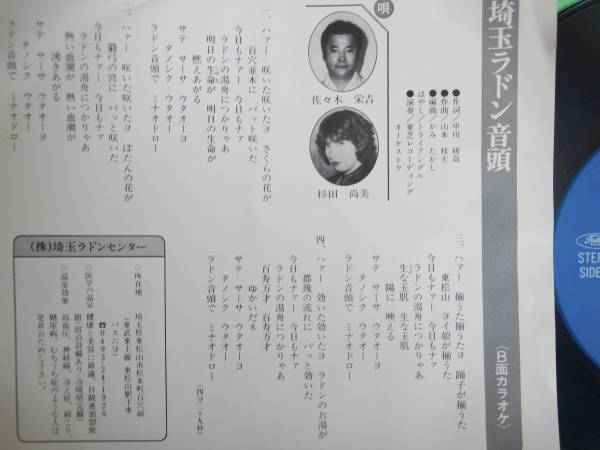 埼玉ラドン音頭
〈B面カラオケ〉
●作詞／中川 研哉
●作曲／山本 桂丈
●編曲／かみ たかし
はやし／トライアングル
●演奏／東芝レコーディング
オーケストラ
唄
佐々木 栄吉
杉田 尚美
一、ハァー 咲いた咲いたヨ さくらの花が
百穴並木に パット咲いた
今日もナァ 今日もナァ
ラドンの湯舟につかりゃあ
明日の生命が 明日の生命が
燃えあがる
サテ サーサ ウタオーヨ
タノシク ウタオー
ラドン音頭で ミナオドロー
二、ハァー 咲いた咲いたヨ ぼたんの花が
箭弓の宮に パッと咲いた
今日もナァー 今日もナァ
ラドンの湯舟につかりゃあ
熱い血潮が 熱い血潮が
湧きあがる
サテ サーサ ウタオーヨ
タノシク ウタオー
ラドン音頭で ミナオドロー
三、ハァー 揃うた揃うたヨ 踊子が揃うた
東松山 ヨイ娘が揃うた
今日もナァー 今日もナァー
ラドンの湯舟につかりゃあ
生な玉肌 生な玉肌
陽に 映える
サテ サーサ ウタオーヨ
タノシク ウタオー
ラドン音頭で ミナオドロー
四、ハァー 効いた効いたヨ ラドンのお湯が
都幾の流れに パッと効いた
今日もナァー 今日もナァ
ラドンの湯舟につかりゃあ
百寿万才 百寿万才
ゆかいだネ
サテ サーサ ウタオーヨ
タノシク ウタオー
ラドン音頭で ミナオドロー
(四分二十九秒)
(株)埼玉ラドンセンター
○所在地 埼玉県東松山市市本町百穴前
(東武東上線 東松山駅下車
バス六分)
☎0493-24-1920
○医学の温泉 健康と美容に最適、日観連加盟旅
館(宿泊設備あり・冷暖房完備)
○温泉効果 高血圧、神経痛、冷え症、肩こり、
糖尿病、むちうち症のような人は
是非おためし下さい。
STER
SIDE